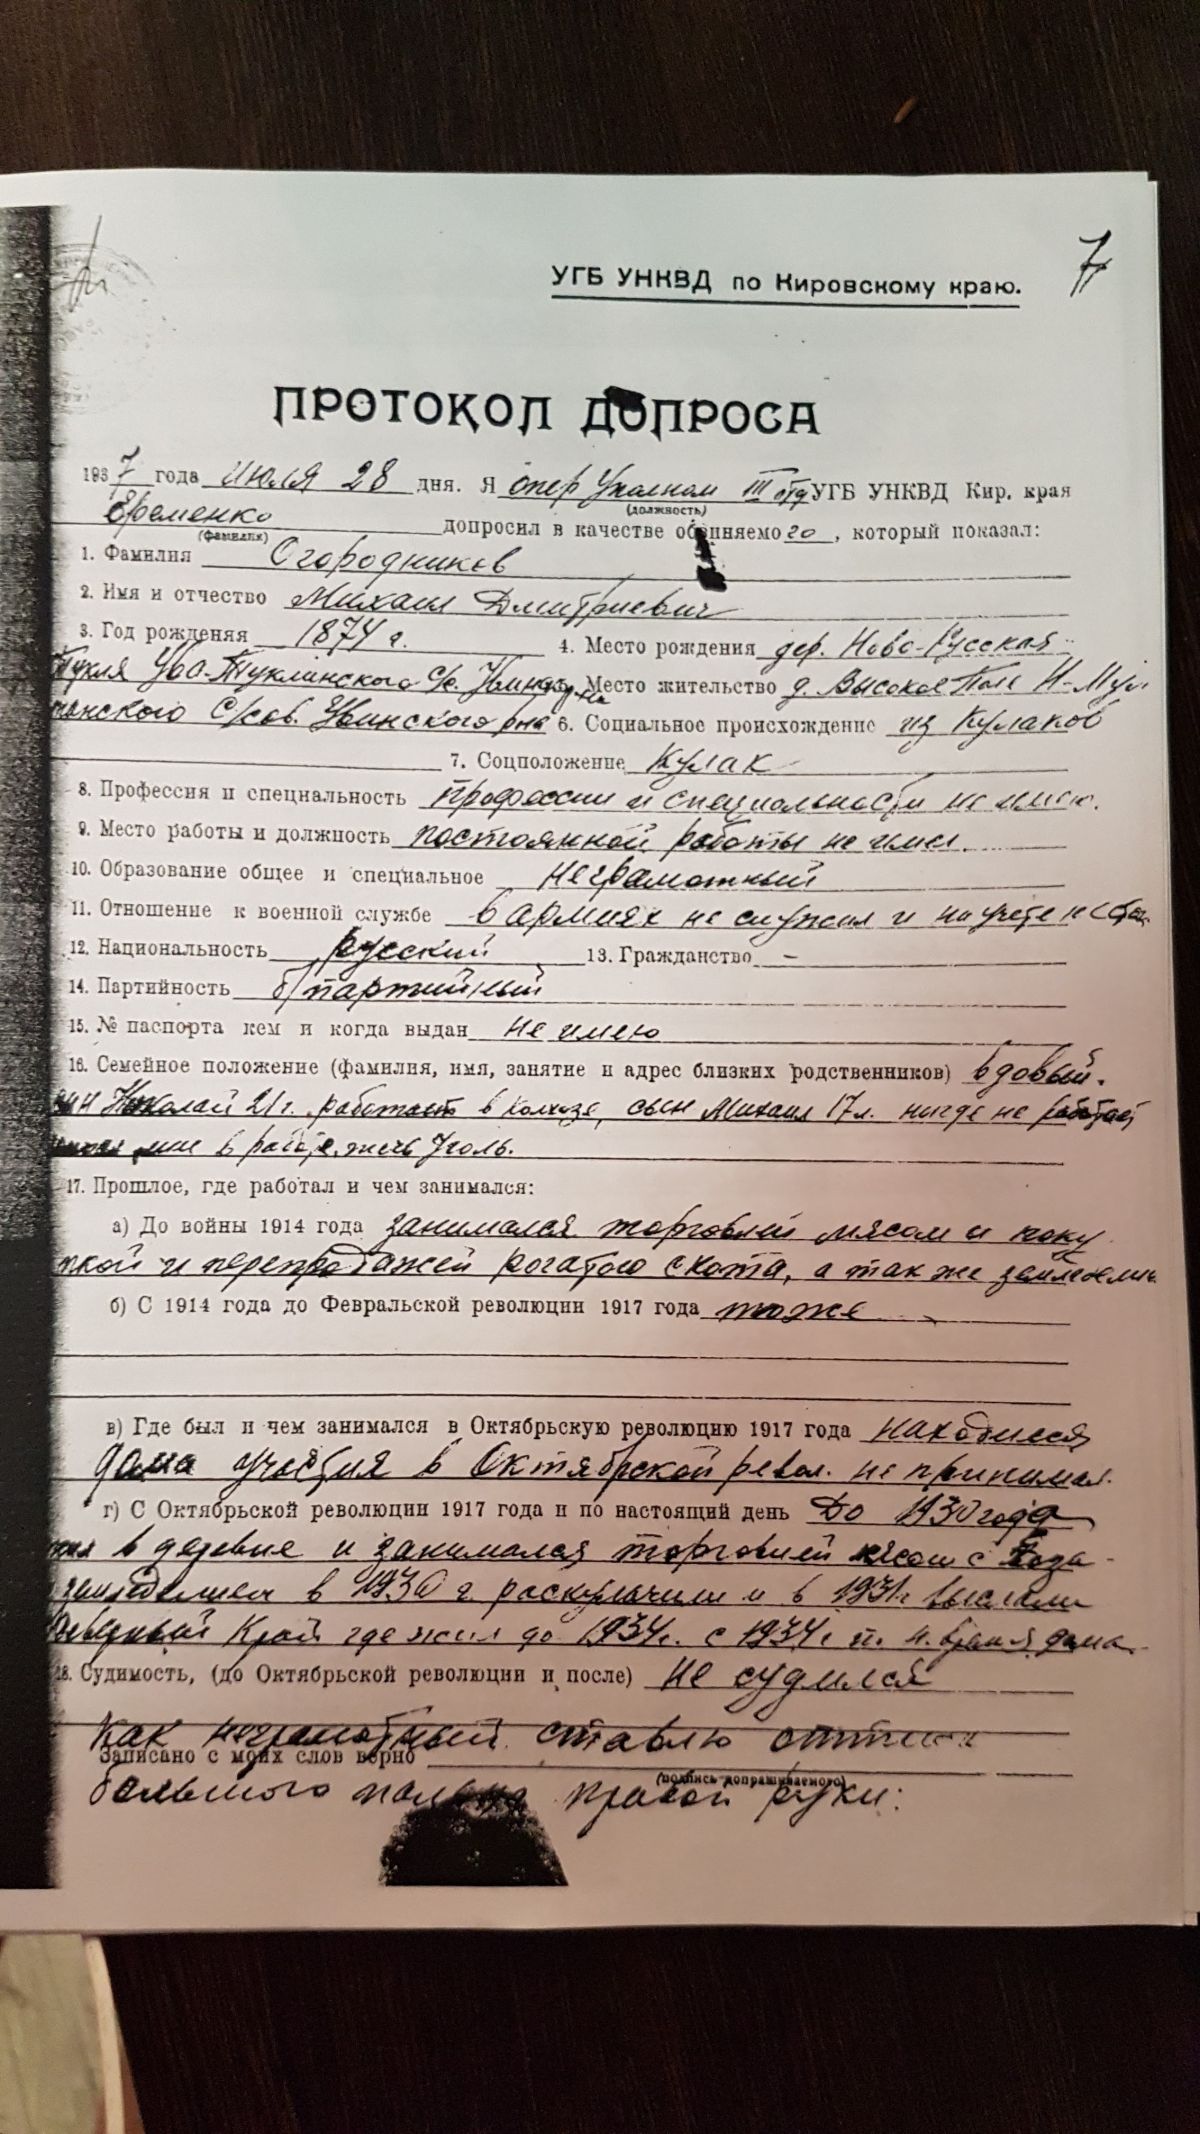 7
УГБ УНКВД по Кировскому краю.
ПРОТОКОЛ ДОПРОСА
1937 года Июля 28 дня. Я опер Уполном III отд УГБ УНКВД Кир. края
(должность)
Еременко допросил в качестве обвиняемого, который показал:
(фамилия)
1. Фамилия Огородников
2. Имя и отчество Михаил Дмитриевич
3. Год рождения 1874 г. 4. Место рождения дер. Ново-Русская
Тукля Ува-Туклинского С/с. Место жительство д. Высокое Поле Н-Мул
танского С/сов. Увинского р-на 6. Социальное происхождение из кулаков
7. Соцположение Кулак
8. Профессия и специальность Профессии и специальности не имею.
9. Место работы и должность постоянной работы не имел.
10. Образование общее и специальное неграмотный
11. Отношение к военной службе в армиях не служил и на учете не
12. Национальность русский 13. Гражданство –
14. Партийность б/партийный
15. № паспорта кем и когда выдан не имею
16. Семейное положение (фамилия, имя, занятие и адрес близких родственников) вдовый.
Николай 21 г. работает в колхозе, сын Михаил 17 л. нигде не работает
мне в работе, жечь уголь.
17. Прошлое, где работал и чем занимался:
а) До войны 1914 года занимался торговлей мясом и поку
пкой и перепродажей рогатого скота, а так же земледелием
б) С 1914 года до Февральской революции 1917 года тоже
в) Где был и чем занимался в Октябрьскую революцию 1917 года находился
дома участия в Октябрьской револ. не принимал.
г) С Октябрьской революции 1917 года и по настоящий день До 1930 года
жил в деревне и занимался торговлей мясом с
в 1930 г. раскулачили и в 1931 г выслали
Северный Край где жил до 1934 г. с 1934 г п. н. время дома
18. Судимость, (до Октябрьской революции и после) не судился
Как неграмотный ставлю оттиск
Записано с моих слов верно
(подпись допрашиваемого)
большого пальца правой руки: